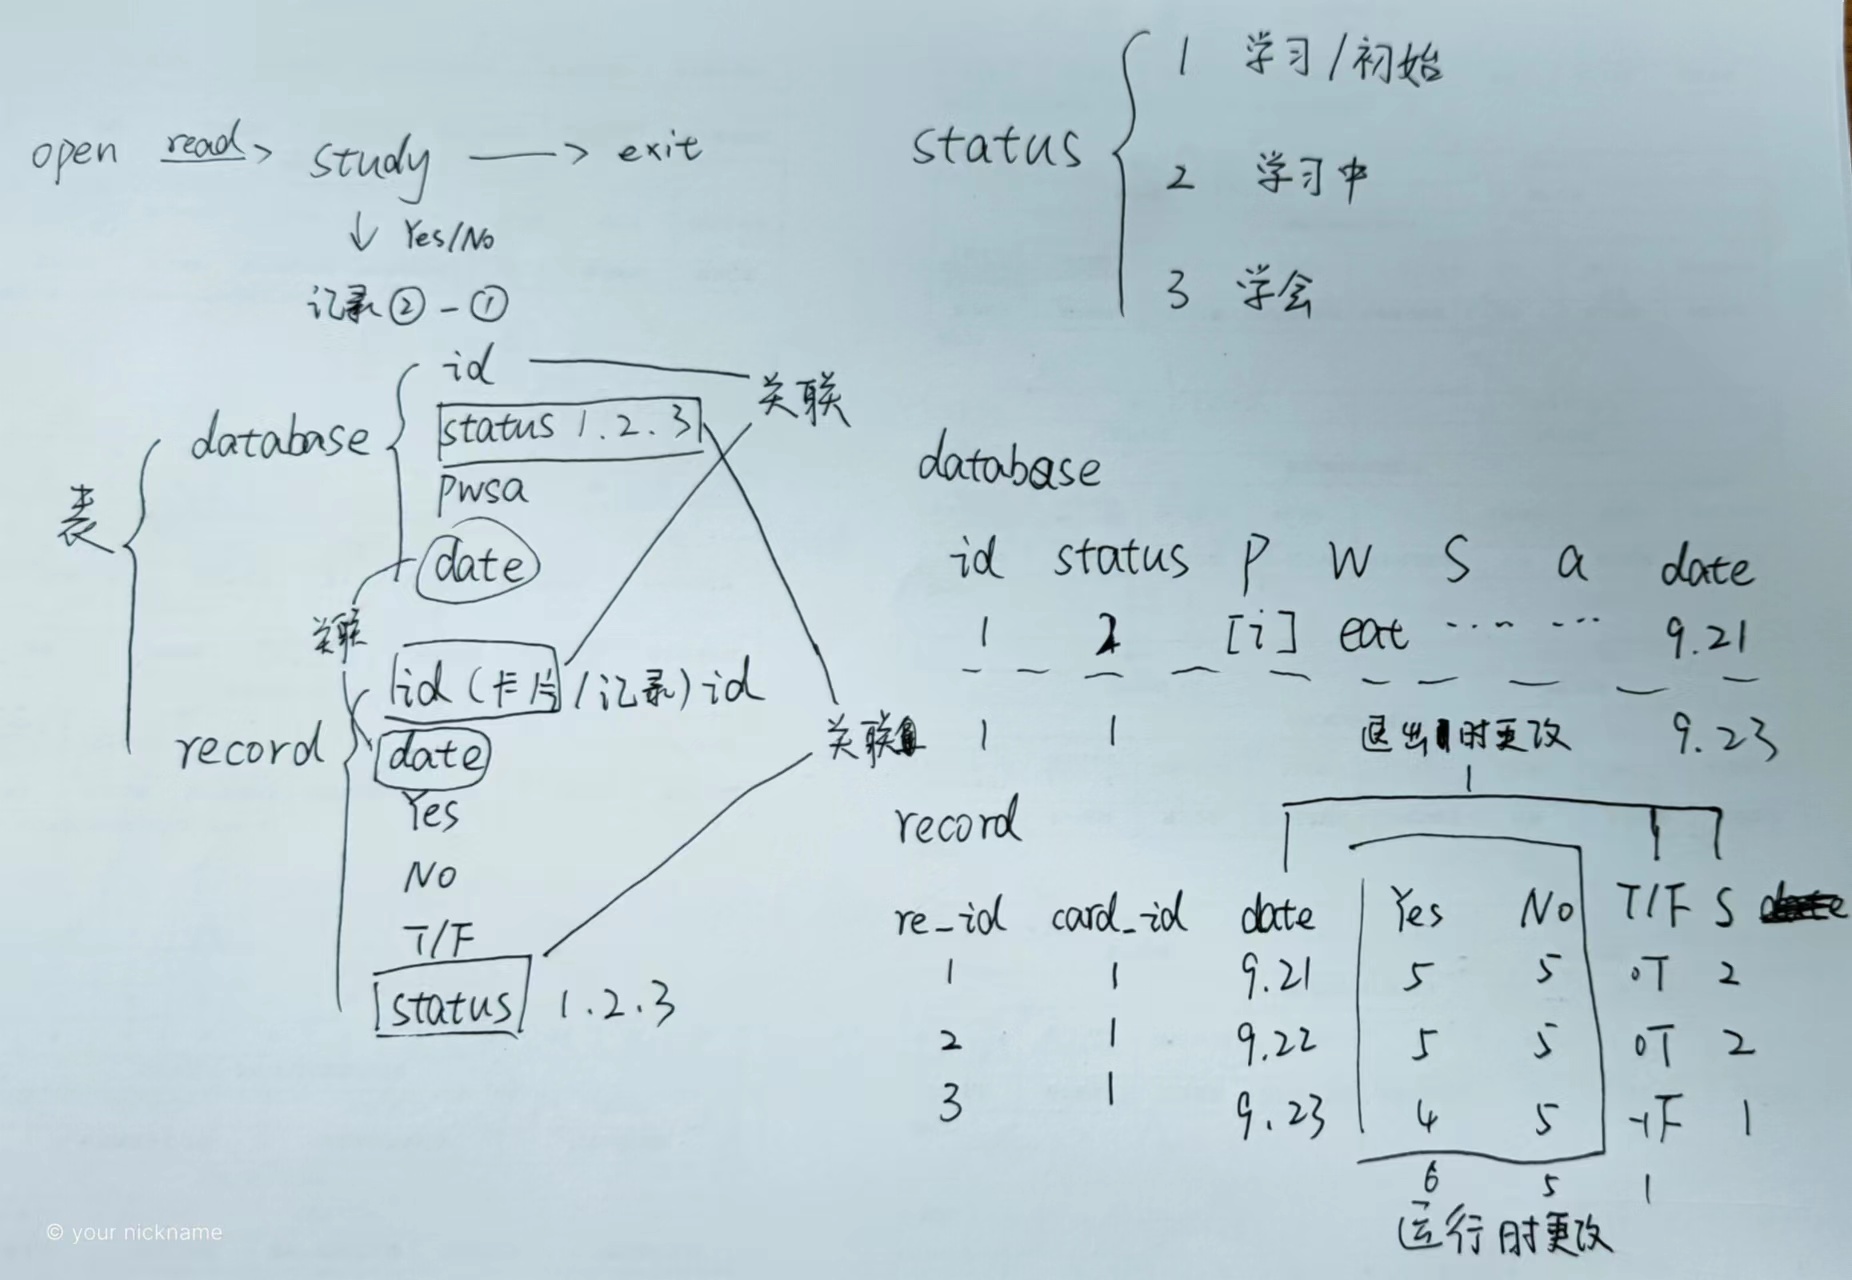 open read study exit
Yes/No
记录②-①
status
1 学习/初始
2 学习中
3 学会
表
database
id 关联
status 1.2.3
pwsa
date
关联
record
id(卡片/记录)id
date
Yes
No
T/F
status 1.2.3
关联
database
id status P W S a date
1 2 [i] eat ..... ..... 9.21
1 1 退出时更改 9.23
1
record
re_id card_id date Yes No T/F S
1 1 9.21 5 5 0T 2
2 1 9.22 5 5 0T 2
3 1 9.23 4 5 -1F 1
6 5 1
运行时更改
© your nickname